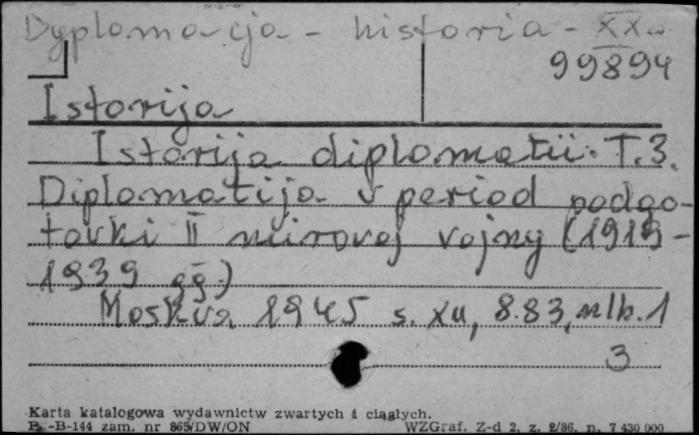 Dyplomacja - historia - XX w
99894
Istorija
Istorija diplomatii. T.3.
Diplomatija v period podgo-
tovki II mirovoj vojny (1919-
1939 gg.)
Moskva 1945 s. 883, nlb. 1
3
Karta katalogowa wydawnictw zwartych i ciągłych.
P. -B-144 zam. nr 865/DW/ON WZGraf. Z-d 2, z. 2/86, n. 7 430 000